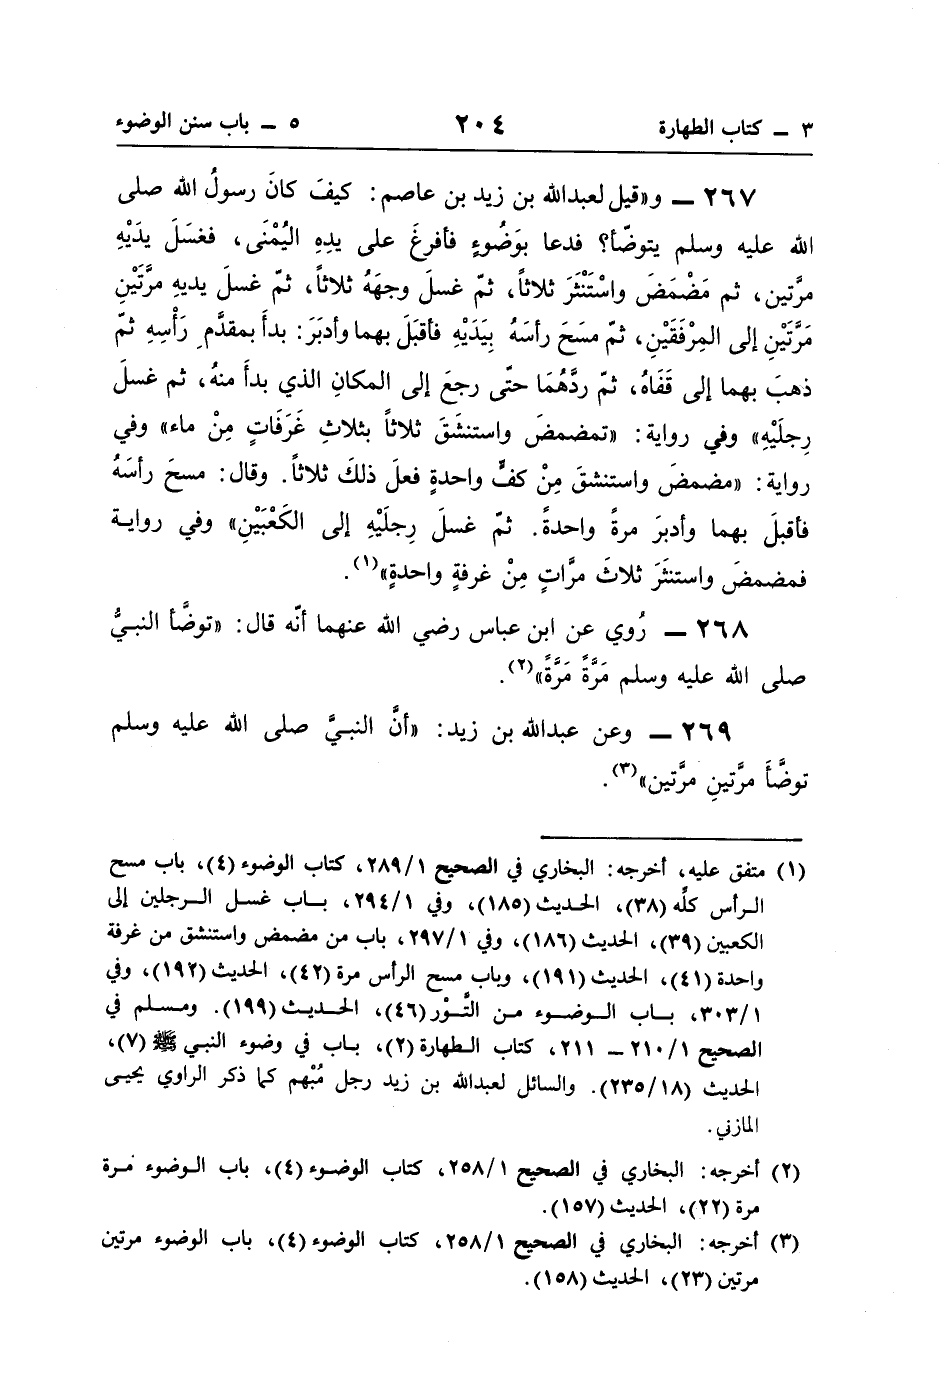 ٣ ــ كتاب الطهارة ٢٠٤ ٥ ــ باب سنن الوضوء
٢٦٧ ــ و«قيل لعبدالله بن زيد بن عاصم: كيفَ كانَ رسولُ الله صلى
الله عليه وسلم يتوضّأ؟ فدعا بوَضُوءٍ فأفرغَ على يدِهِ اليُمْنَى، فغسَلَ يدَيْهِ
مرَّتين، ثم مَضْمَضَ واسْتَنْثَرَ ثلاثاً، ثمّ غسلَ وجهَهُ ثلاثاً، ثمّ غسلَ يديهِ مرَّتَيْنِ
مَرَّتَيْنِ إلى المِرْفَقَيْنِ، ثمّ مسَحَ رأسَهُ بِيَدَيْهِ فأقبَلَ بهما وأدبَرَ: بدأَ بمقدَّمِ رَأْسِهِ ثمّ
ذهبَ بهما إلى قَفَاهُ، ثمّ ردَّهُمَا حتّى رجعَ إلى المكانِ الذي بدأَ منهُ، ثم غسلَ
رِجلَيْهِ» وفي رواية: «تمضمضَ واستنشقَ ثلاثاً بثلاثِ غَرَفَاتٍ مِنْ ماء» وفي
رواية: «مضمضَ واستنشقَ مِنْ كفٍّ واحدةٍ فعلَ ذلكَ ثلاثاً. وقال: مسحَ رأسَهُ
فأقبلَ بهما وأدبرَ مرةً واحدةً. ثمّ غسلَ رِجلَيْهِ إلى الكَعْبَيْنِ» وفي روايـة
فمضمضَ واستنثَرَ ثلاثَ مرَّاتٍ مِنْ غرفةٍ واحدةٍ»(١).
٢٦٨ ــ رُوي عن ابن عباس رضي الله عنهما أنّه قال: «توضَّأ النبيُّ
صلى الله عليه وسلم مَرَّةً مَرَّةً»(٢).
٢٦٩ ــ وعن عبدالله بن زيد: «أنَّ النبـيَّ صلى الله عليه وسلم
توضَّأَ مرَّتينِ مرَّتين»(٣).
(١) متفق عليه، أخرجه: البخاري في الصحيح ٢٨٩/١، كتاب الوضوء (٤)، باب مسح
الـرأس كلّه (٣٨)، الحـديث (١٨٥)، وفي ٢٩٤/١، بـاب غسـل الـرجلين إلى
الكعبين (٣٩)، الحديث (١٨٦)، وفي ٢٩٧/١، باب من مضمض واستنشق من غرفة
واحدة (٤١)، الحديث (١٩١)، وباب مسح الرأس مرة (٤٢)، الحديث (١٩٢)، وفي
٣٠٣/١، بـاب الـوضـوء مـن التَّوْر (٤٦)، الحـديـث (١٩٩). ومسـلم في
الصحيح ٢١٠/١ ــ ٢١١، كتاب الطهارة (٢)، بـاب في وضوء النبـي ﷺ (٧)،
الحديث (٢٣٥/١٨). والسائل لعبدالله بن زيد رجل مُبْهم كما ذكر الراوي يحيـى
المازني.
(٢) أخرجه: البخاري في الصحيح ٢٥٨/١، كتاب الوضوء (٤)، باب الوضوء مرة
مرة (٢٢)، الحديث (١٥٧).
(٣) أخرجه: البخاري في الصحيح ٢٥٨/١، كتاب الوضوء (٤)، باب الوضوء مرتين
مرتين (٢٣)، الحديث (١٥٨).